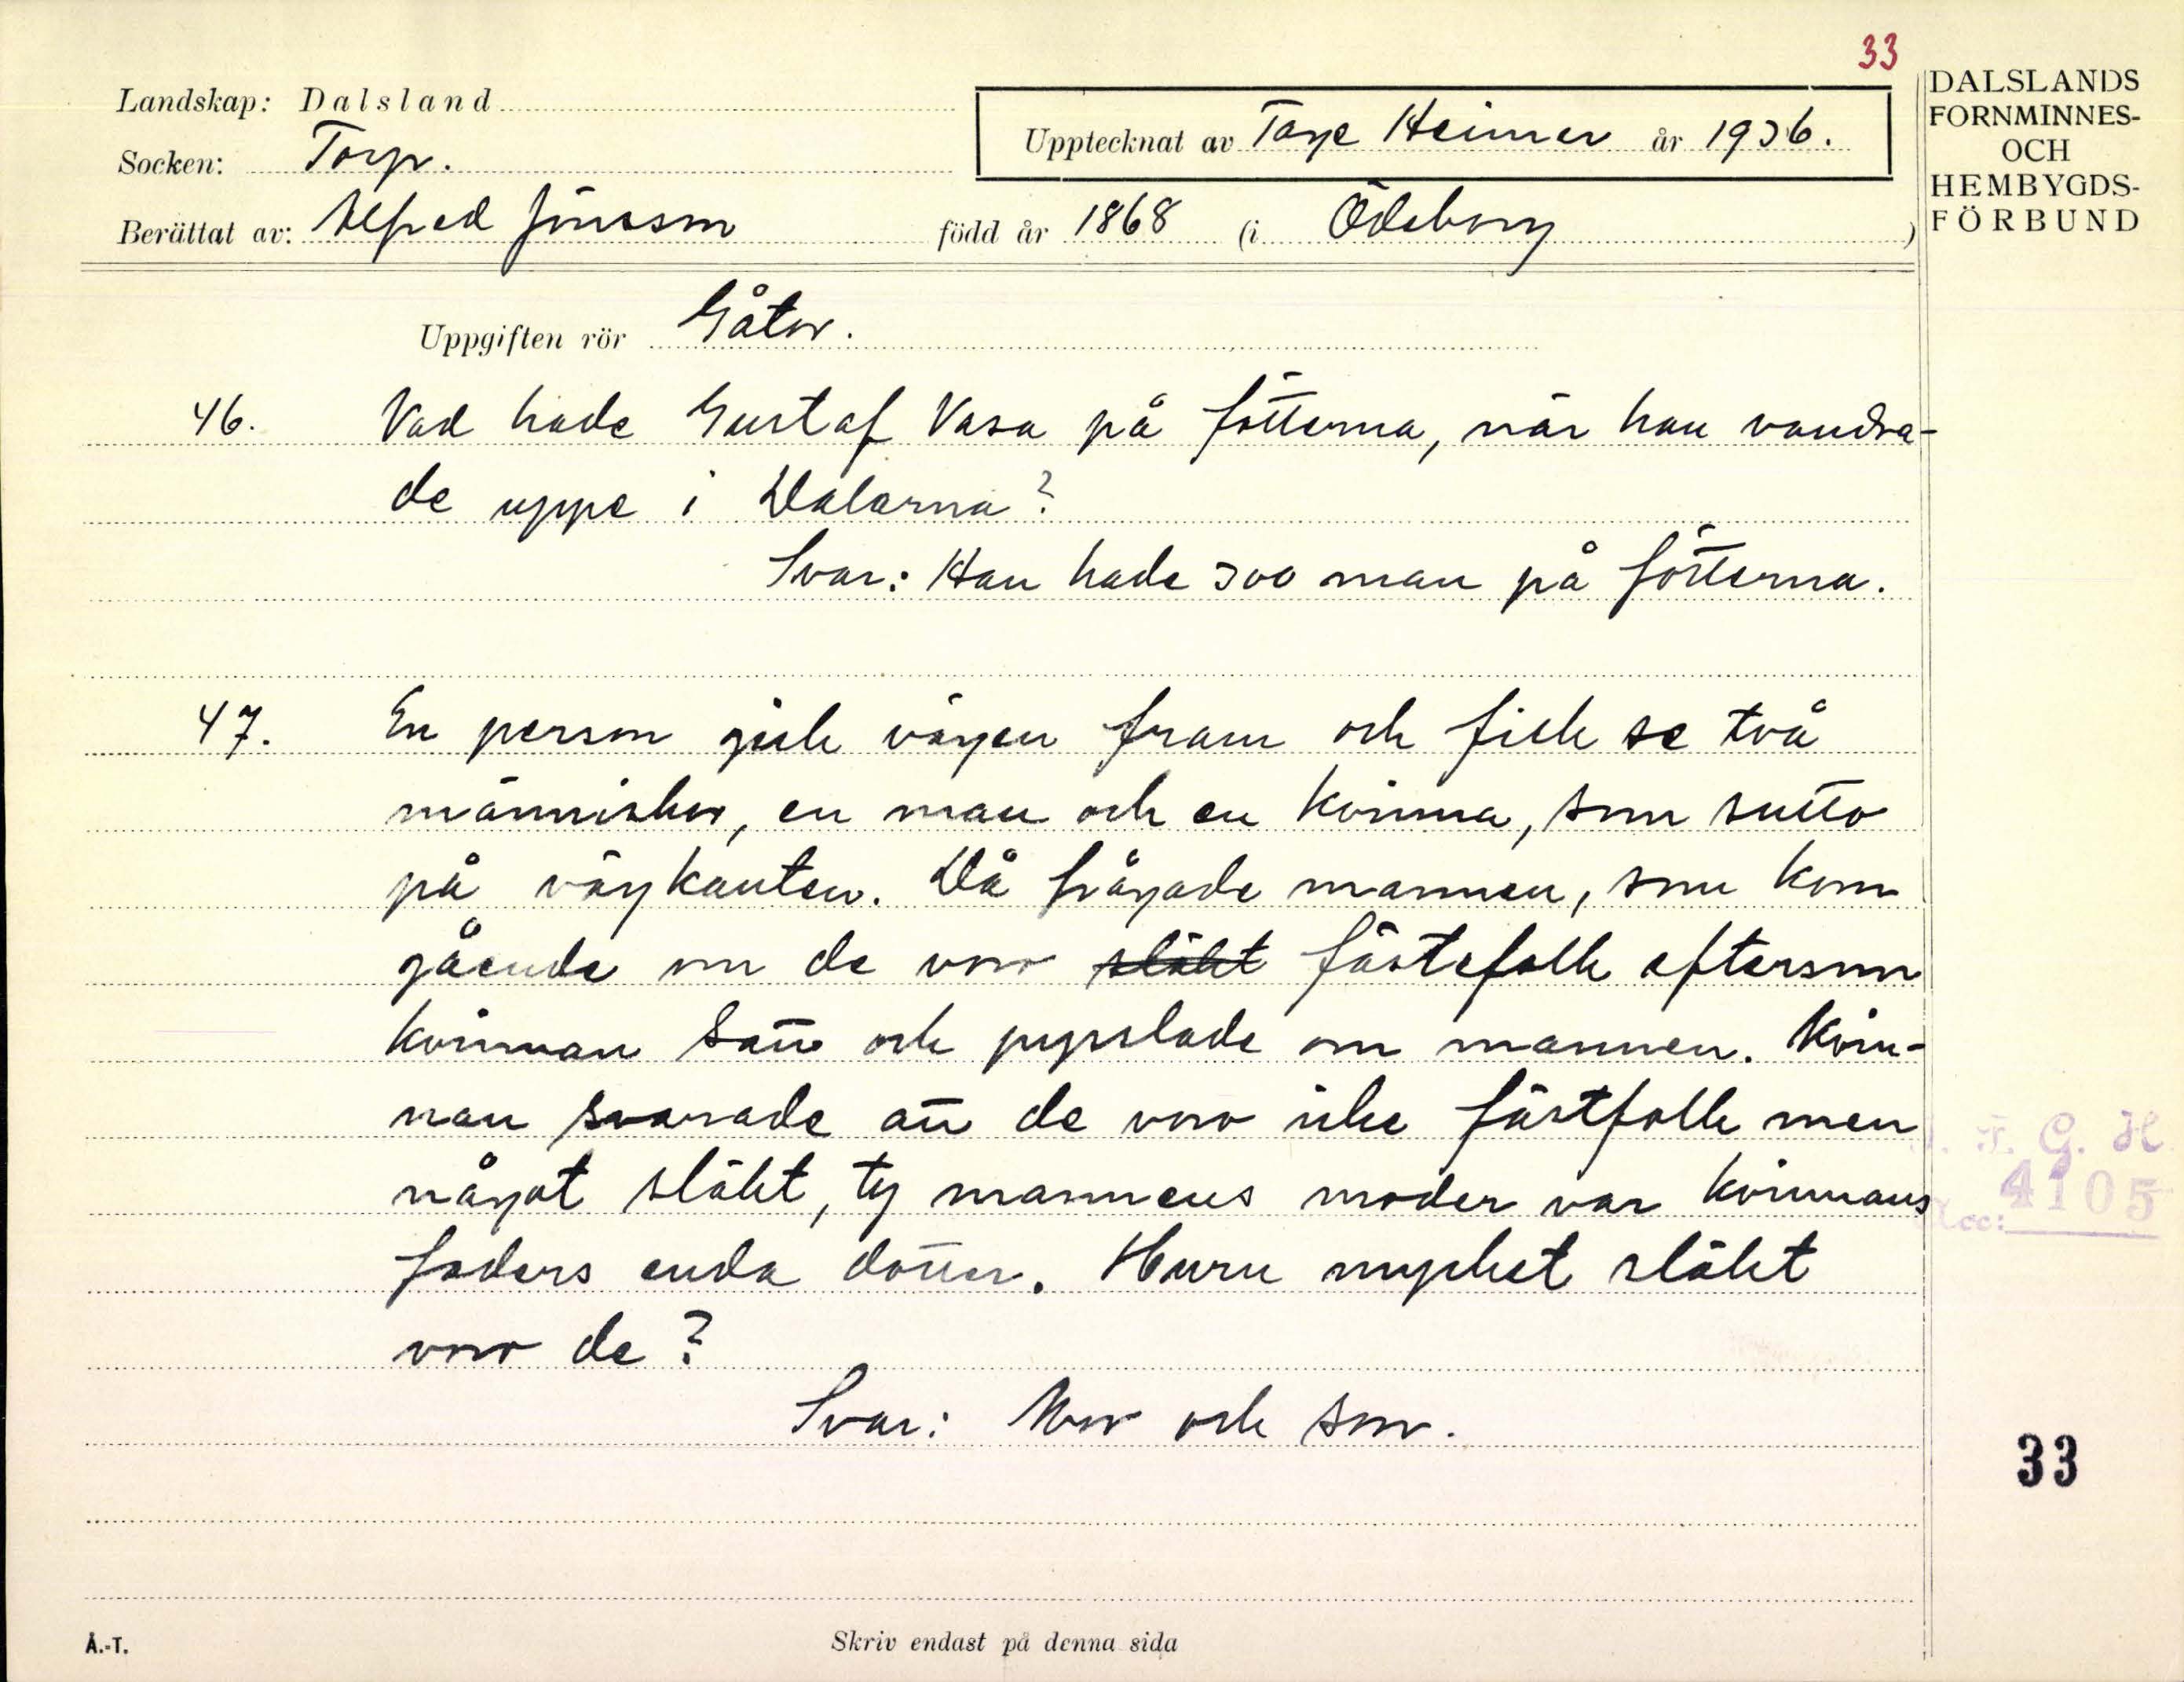 33
Landskap: Dalsland
Socken: Torp.
Upptecknat av Tage Heimer år 1936.
Berättat av: Alfred Jönsson född år 1868 (i Ödeborg )
DALSLANDS
FORNMINNES-
OCH
HEMBYGDS-
FÖRBUND
Uppgiften rör Gåtor.
46. Vad hade Gustaf Vasa på fötterna, när han vandra-
de uppe i Dalarna?
Svar: Han hade 300 man på fötterna.
47. En person gick vägen fram och fick se två
människor, en man och en kvinna, som sutto
på vägkanten. Då frågade mannen, som kom
gående om de voro släkt fästefolk eftersom
kvinnan satt och pysslade om mannen. Kvin-
nan svarade att de voro icke fästfolk men
något släkt, ty mannens moder var kvinnans
faders enda dotter. Huru mycket släkt
voro de?
Svar: Mor och son.
I. F. G. H.
Acc: 4105
33
Å.-T.
Skriv endast på denna sida